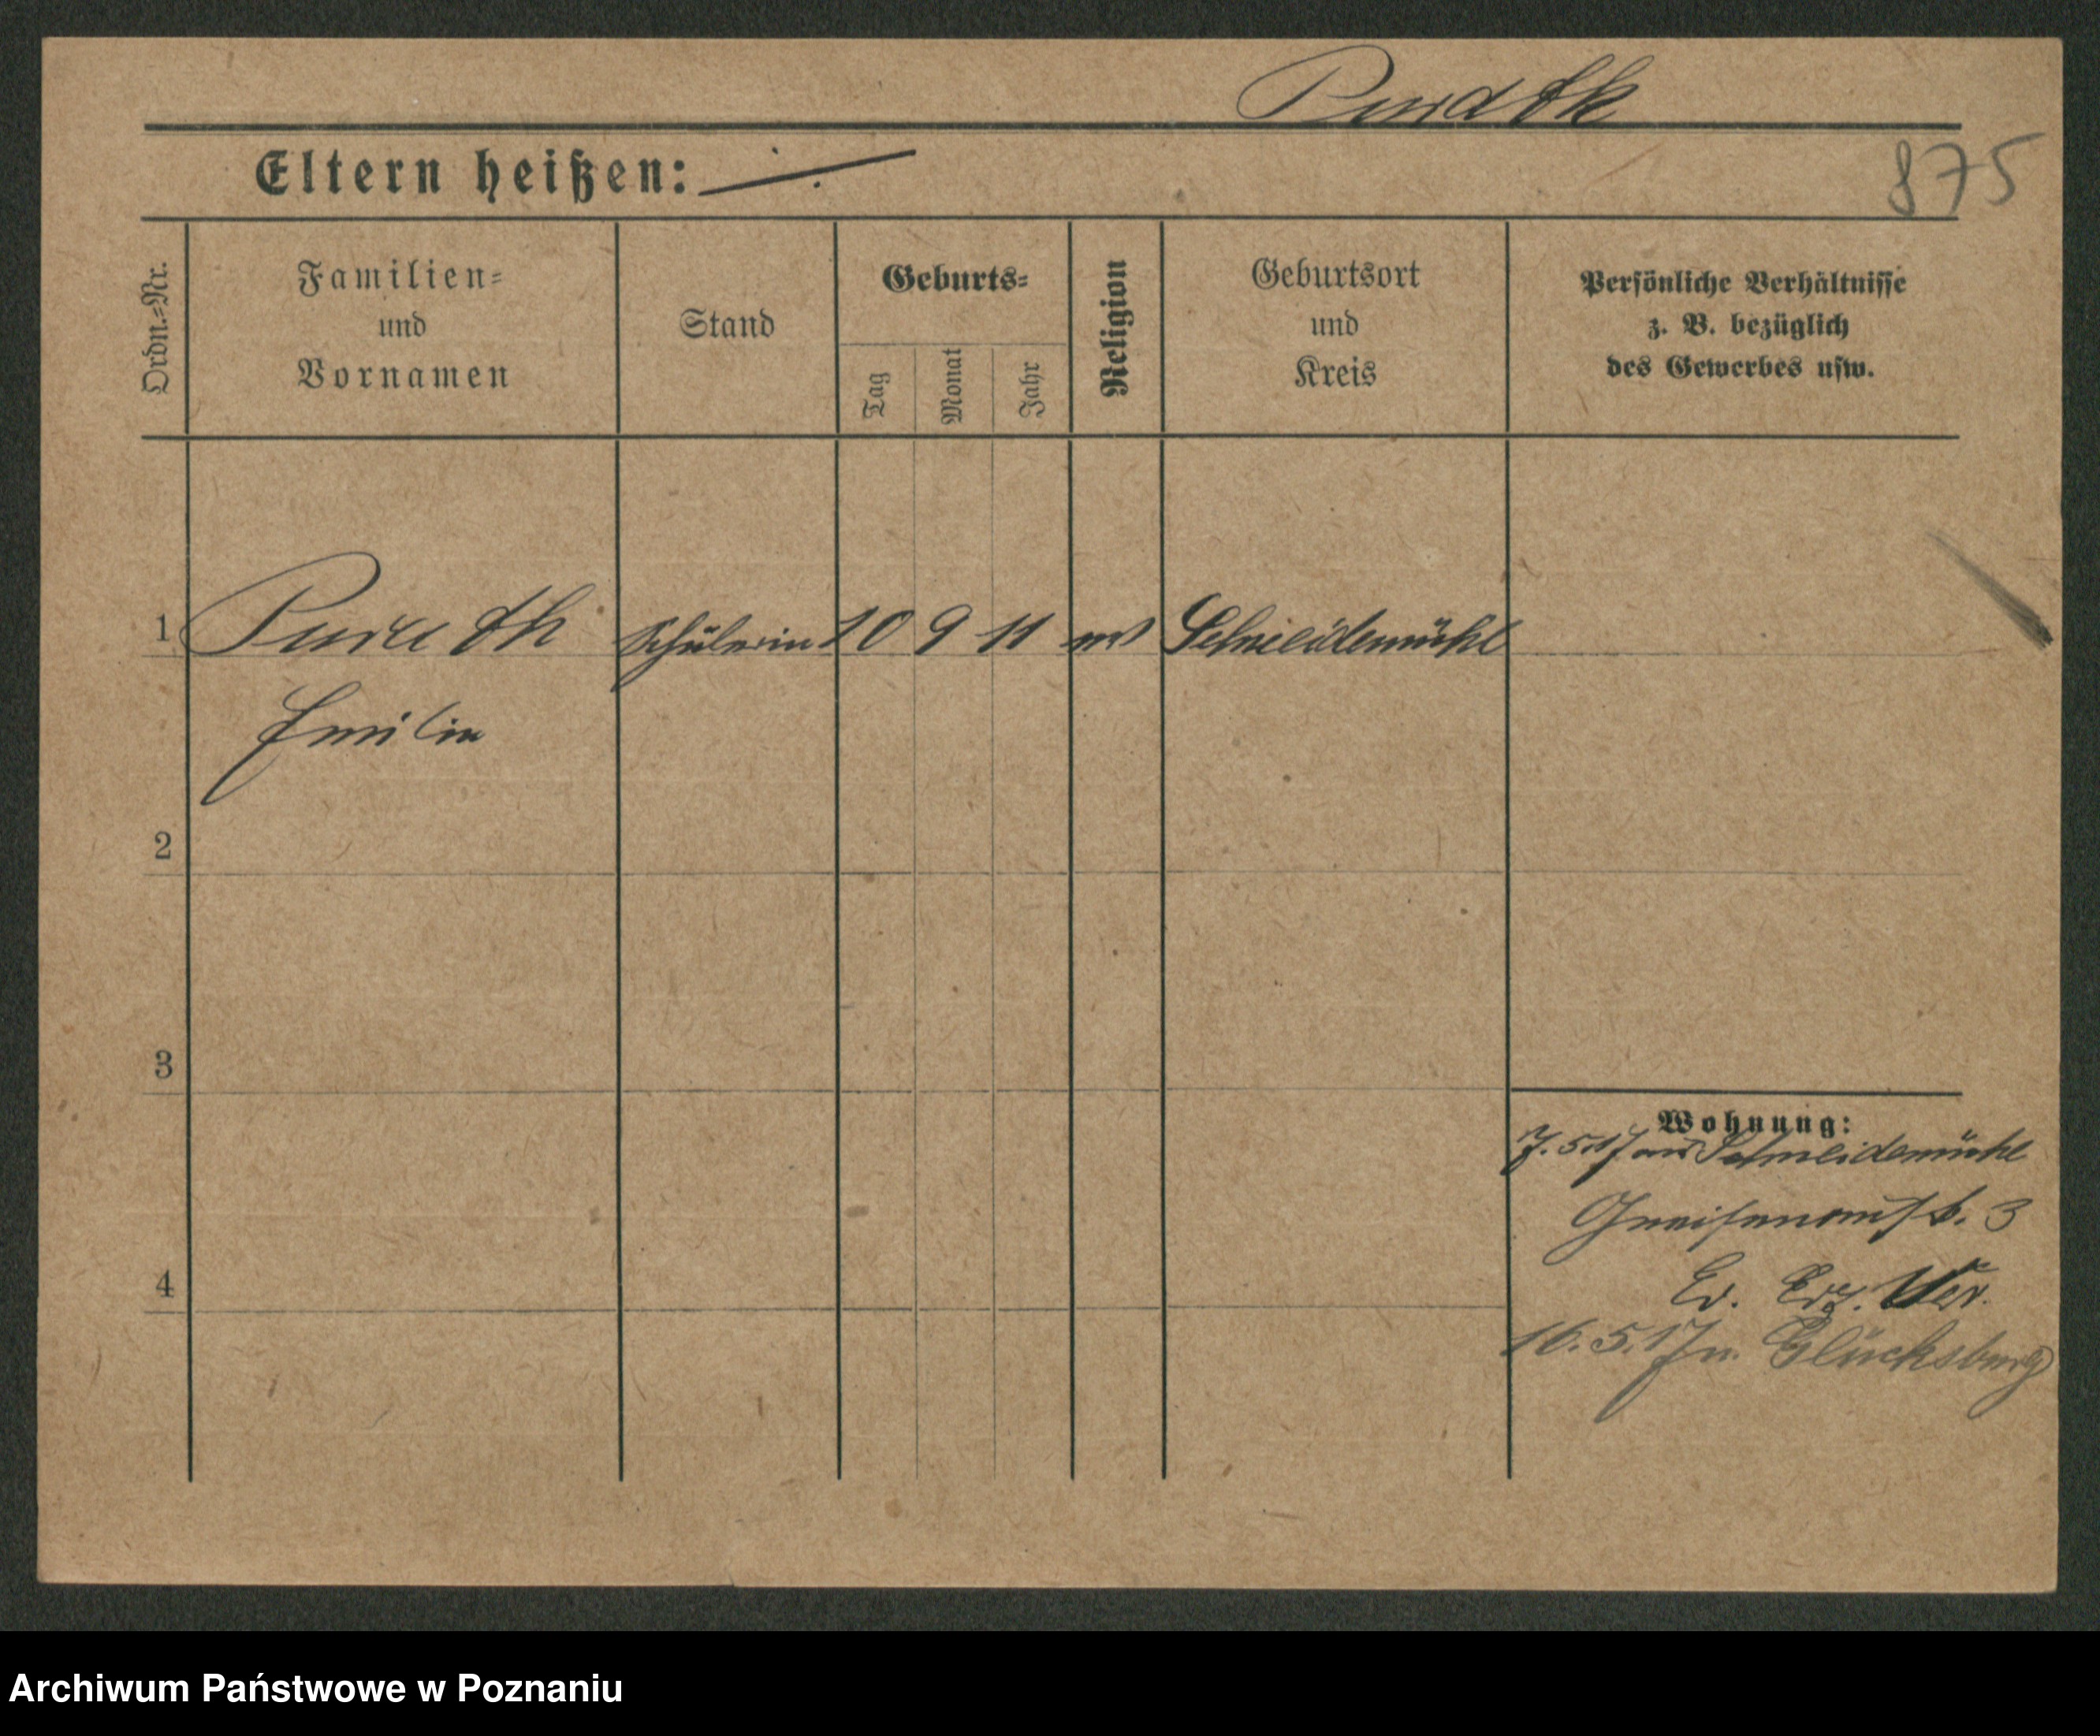 875
Eltern heißen: ⁒
Ordn.-Nr.
Familien-
und
Vornamen
Stand
Geburts-
Tag
Monat
Jahr
Religion
Geburtsort
und
Kreis
Persönliche Verhältnisse
z. B. bezüglich
des Gewerbes usw.
1 Schülerin 10 9 11 Schneidemühl
Emilie
2
3
4
Wohnung:
7.5.17 aus Schneidemühl
Gneisenaustr. 3
Ev. Erz. Ver.
16.5.17 n. Glücksburg
Archiwum Państwowe w Poznaniu